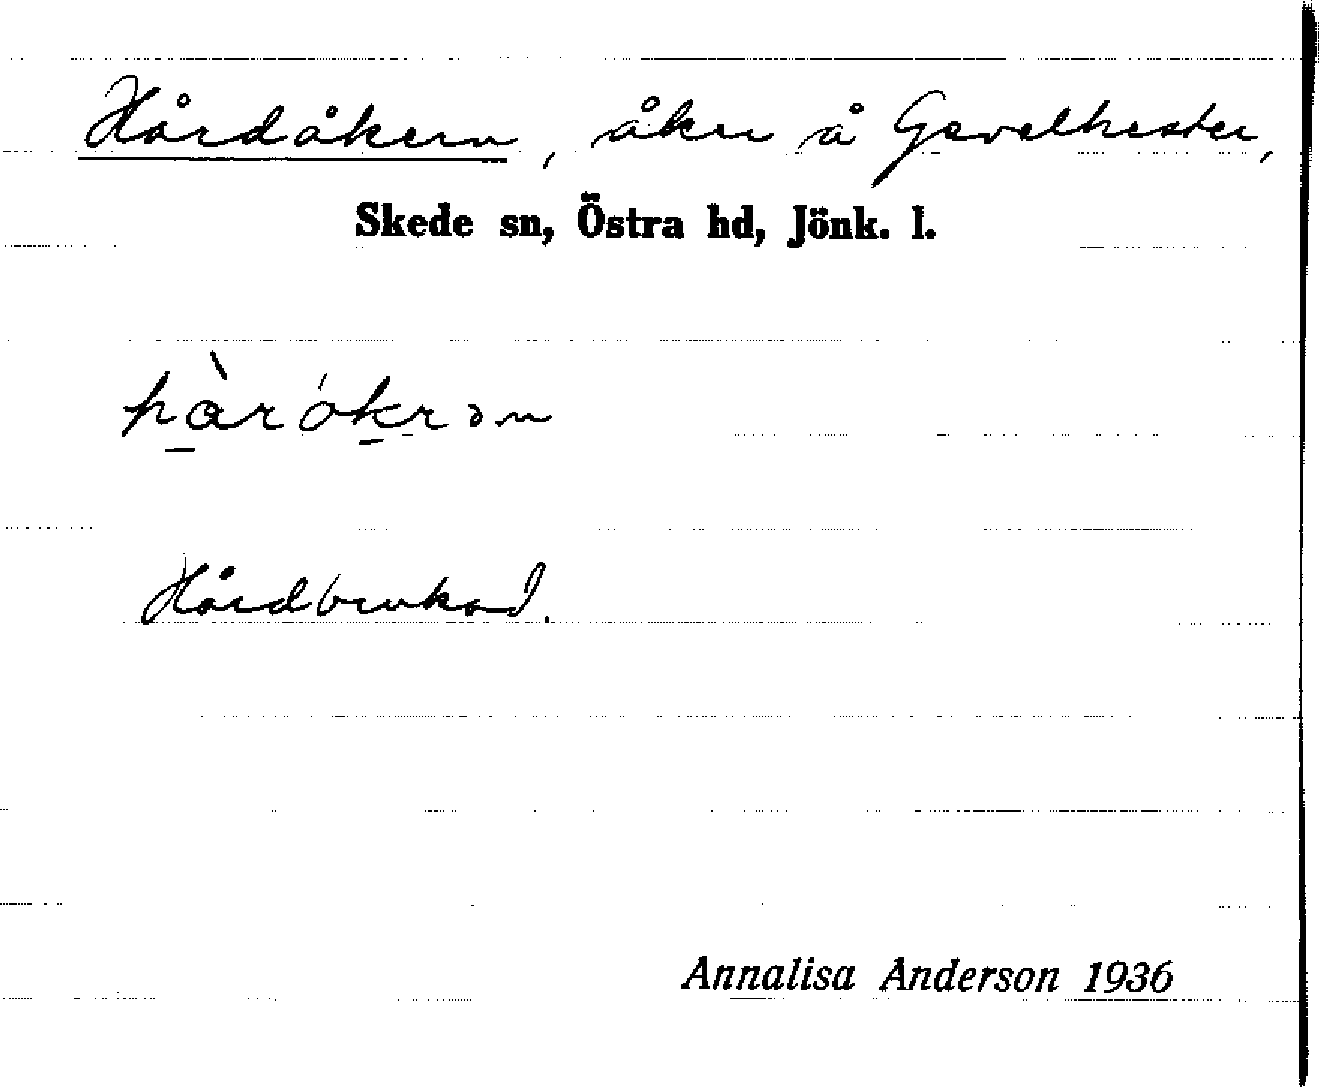 Hårdåkern, åker å Gavelhester,
Skede sn, Östra hd, Jönk. l.
hàrókrən
Hårdbrukad.
Annalisa Anderson 1936